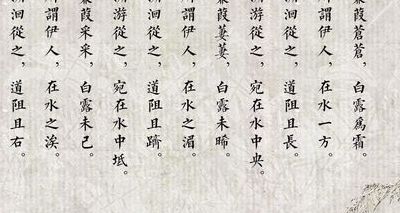 葭蒼蒼，白露爲霜。
謂伊人，在水一方。
洄從之，道阻且長。
游從之，宛在水中央。
葭萋萋，白露未晞。
謂伊人，在水之湄。
洄從之，道阻且躋。
游從之，宛在水中坻。
葭采采，白露未已。
謂伊人，在水之涘。
洄從之，道阻且右。